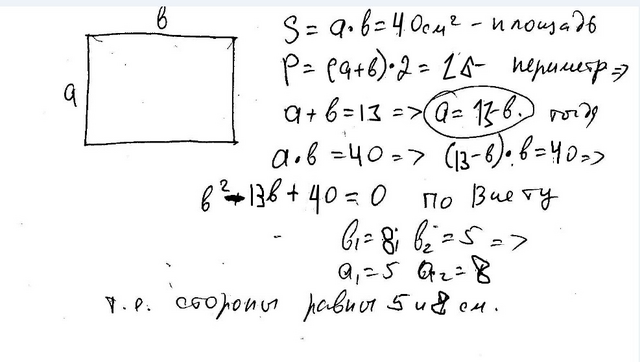 в
a
S = a · в = 40 см² - площадь
P = (a+в)·2 = 26 - периметр =>
a + в = 13 => a = 13-в. тогда
a · в = 40 => (13-в) · в = 40 =>
в² - 13в + 40 = 0 по Виету
в₁ = 8; в₂ = 5 =>
a₁ = 5 a₂ = 8
т.е. стороны равны 5 и 8 см.